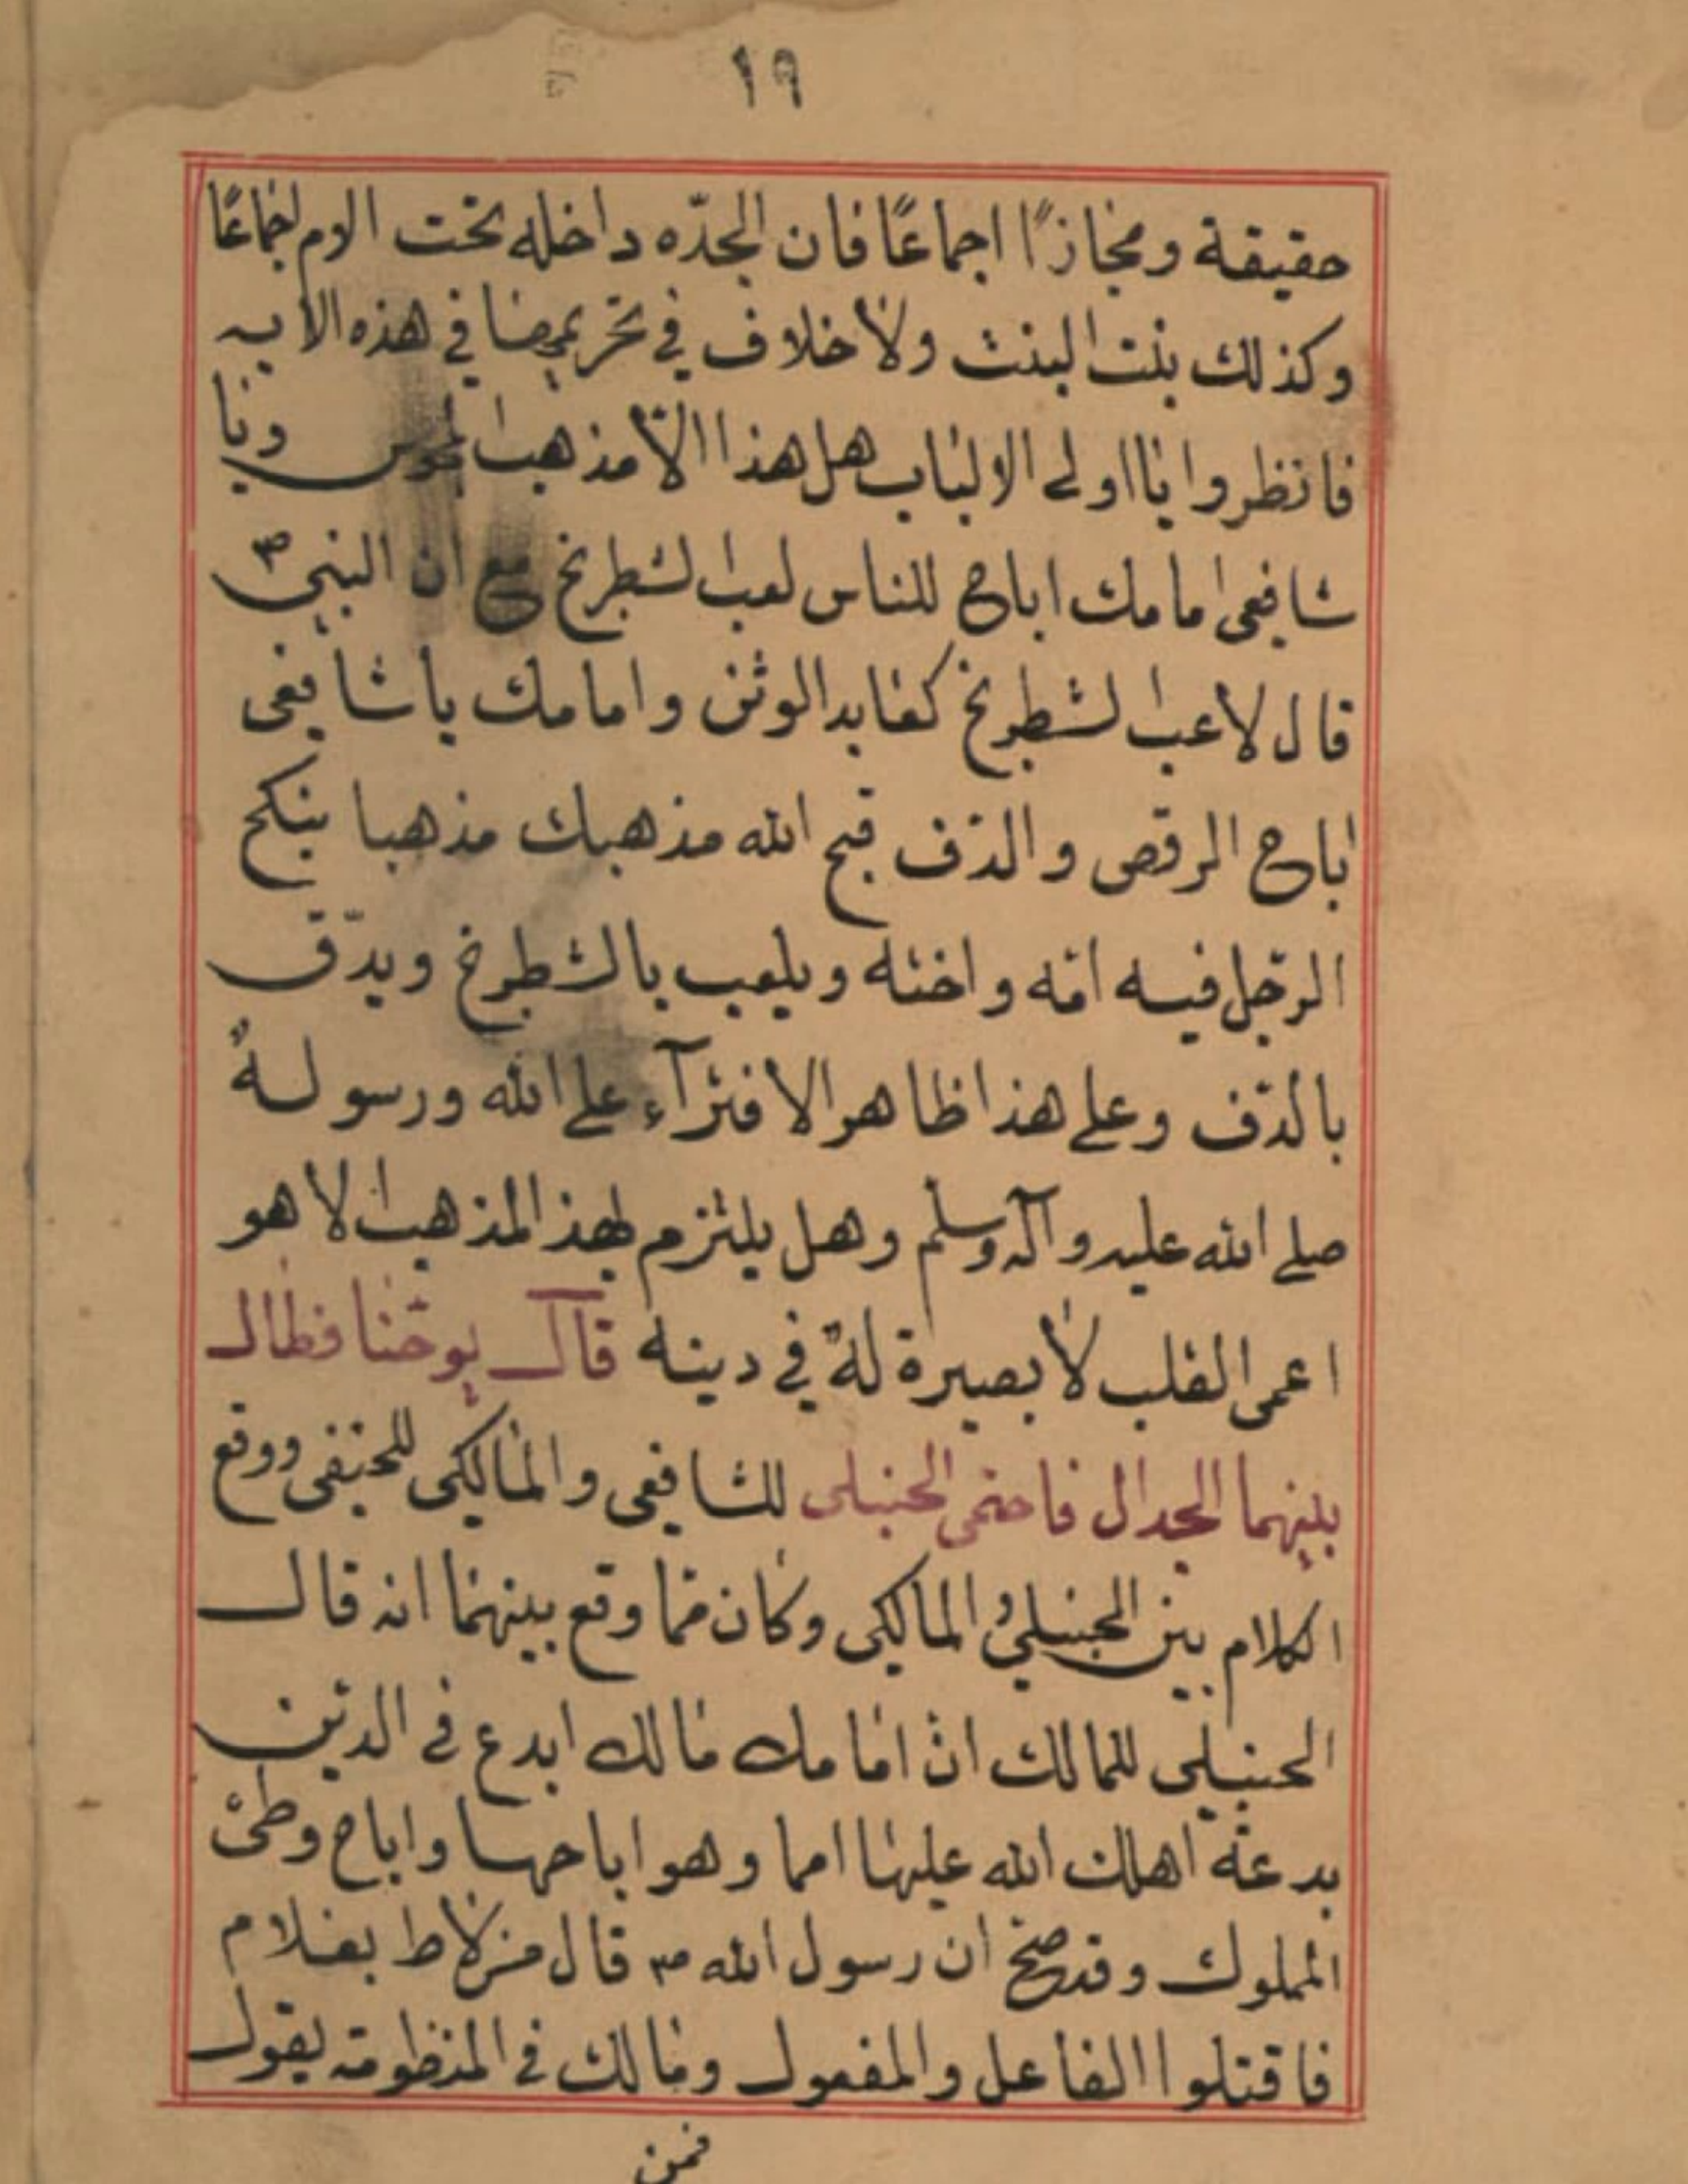 ١٩
حقيقة ومجازًا اجماعًا فان الجدّه داخله تحت الام اجماعًا
وكذلك بنت البنت ولا خلاف في تحريمها في هذه الايه
فانظروا يا اولى الالباب هل هذا الّا مذهب المجوس ويا
شافعى امامك اباح للناس لعب الشطرنج مع ان النبي ص
قال لاعب الشطرنج كعابد الوثن وامامك يا شافعى
اباح الرقص والدّف قبح الله مذهبك مذهبا ينكح
الرّجل فيه امّه واخته ويلعب بالشطرنج ويدّق
بالدّف وعلى هذا ظاهر الافترآء على الله ورسوله
صلى الله عليه وآله وسلم وهل يلتزم لهذ المذهب الا هو
اعمى القلب لا بصيرة له في دينه قآل يوحّنا فطال
بينهما الجدال فاحتمى الحنبلى للشافعى والمالكى للحنفى ووقع
الكلام بين الحنبلي والمالكى وكان ممّا وقع بينهما انه قال
الحنبلى للمالك انّ امامك مالك ابدع في الدّين
بدعة اهلك الله عليها امما وهو اباحها واباح وطئ
المملوك وقد صحّ ان رسول الله ص قال من لاط بغلام
فاقتلوا الفاعل والمفعول ومالك في المنظومة يقول
فمن